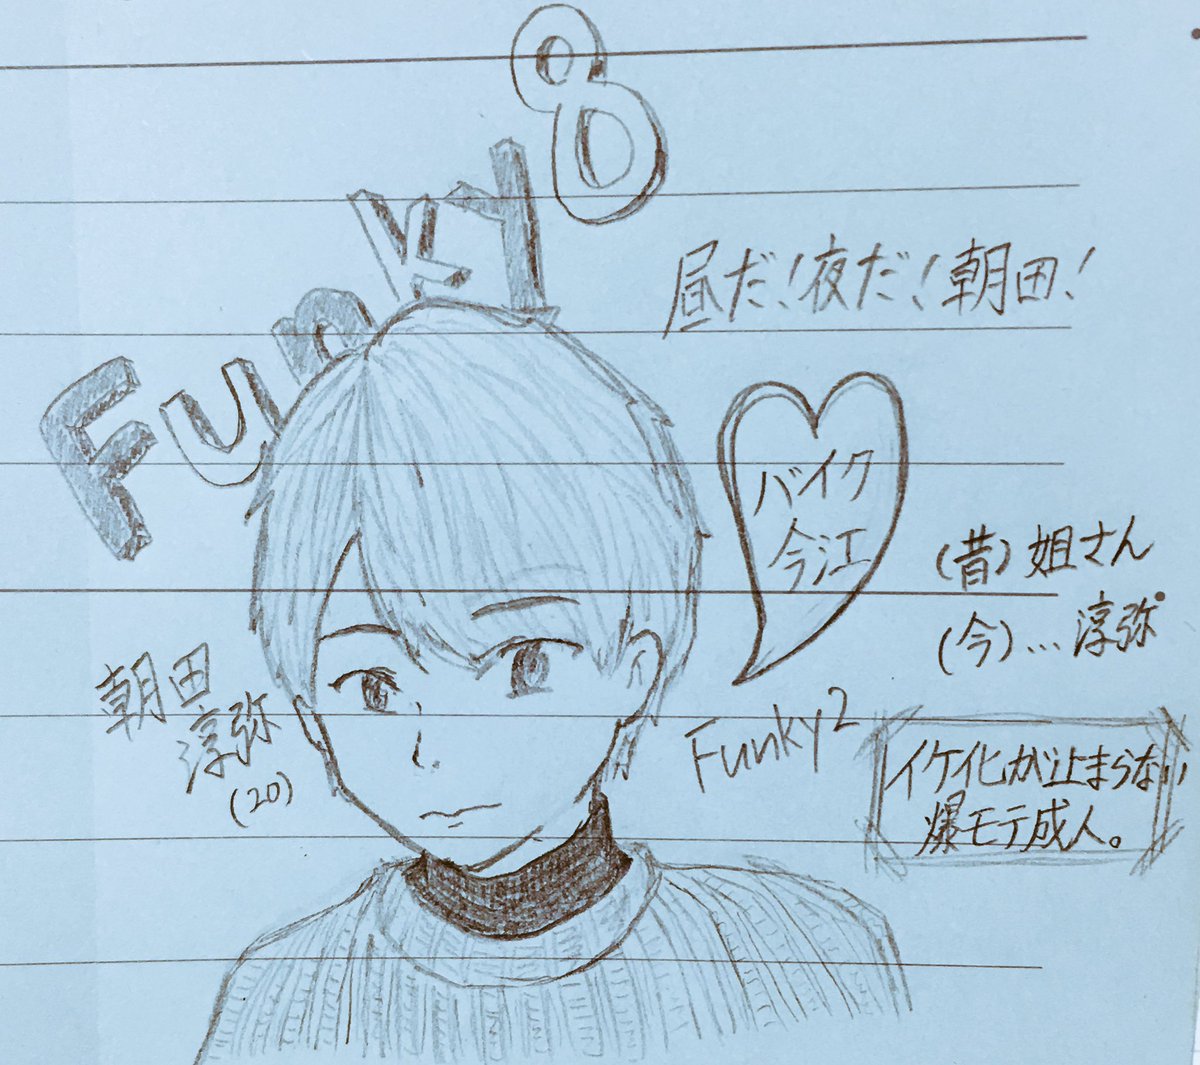 Funky8
昼だ!夜だ!朝田!
バイク
今江
(昔)姐さん
(今)…淳弥
朝田
淳弥
(20)
Funky2
イケ化が止まらない
爆モテ成人。